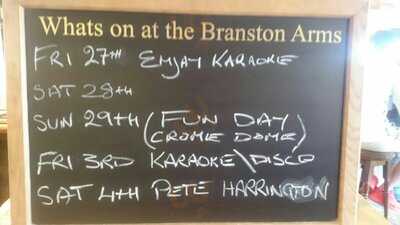 Whats on at the Branston Arms
FRI 27TH EMJAY KARAOKE
SAT 28TH
SUN 29TH (FUN DAY
CROMIE DOME)
FRI 3RD KARAOKE\DISCO
SAT 4TH PETE HARRINGTON